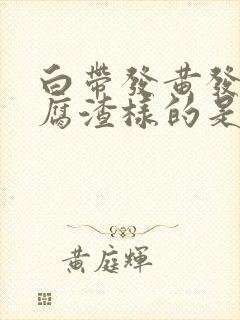 白帶發黃發
腐渣樣的是
黃庭輝